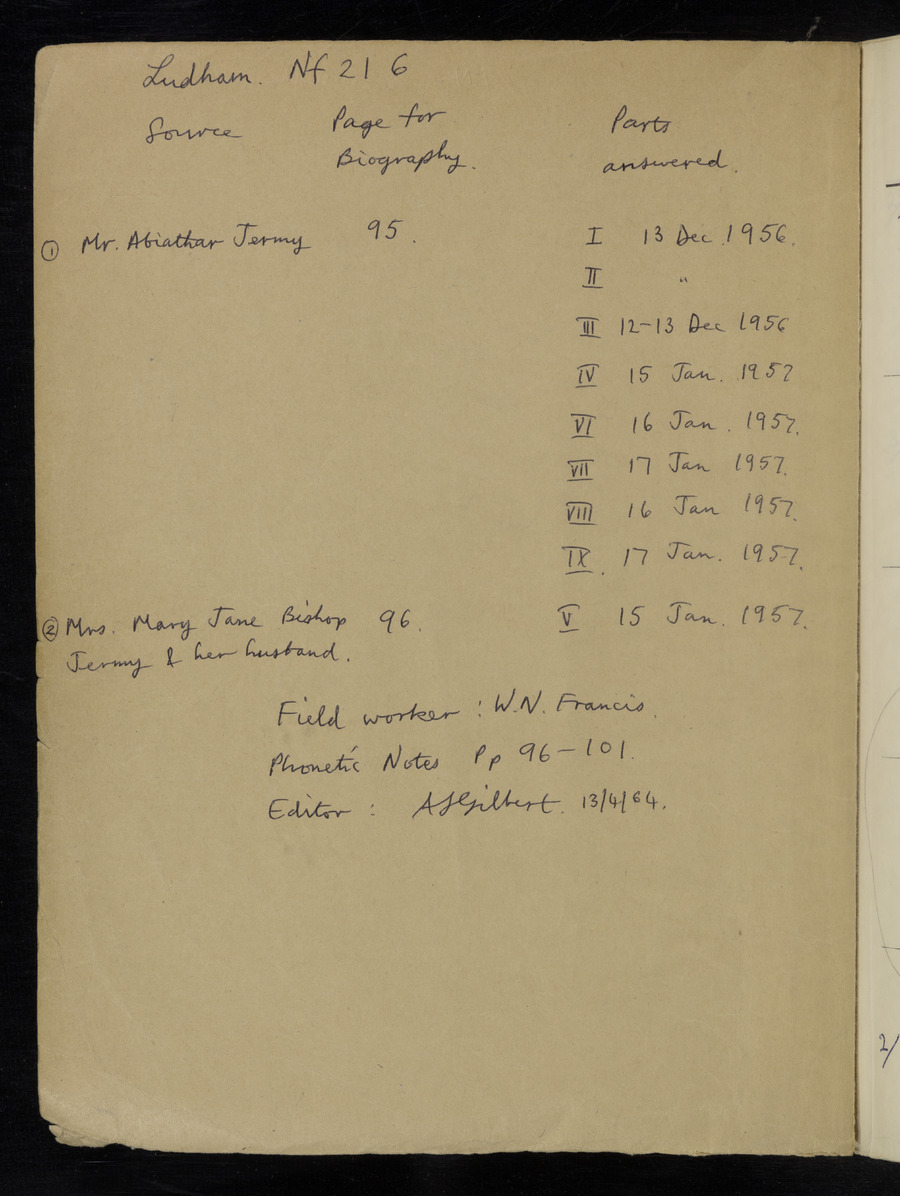 Ludham. Nf 21 6
Source Page for Parts
Biography. answered.
① Mr. Abiathar Jermy 95. I 13 Dec. 1956.
II "
III 12-13 Dec 1956
IV 15 Jan. 1957
VI 16 Jan. 1957.
VII 17 Jan 1957.
VIII 16 Jan 1957.
IX. 17 Jan. 1957.
② Mrs. Mary Jane Bishop 96. V 15 Jan. 1957.
Jermy & her husband.
Field worker : W.N. Francis.
Phonetic Notes Pp 96-101.
Editor : ASGilbert. 13/4/64.
2/